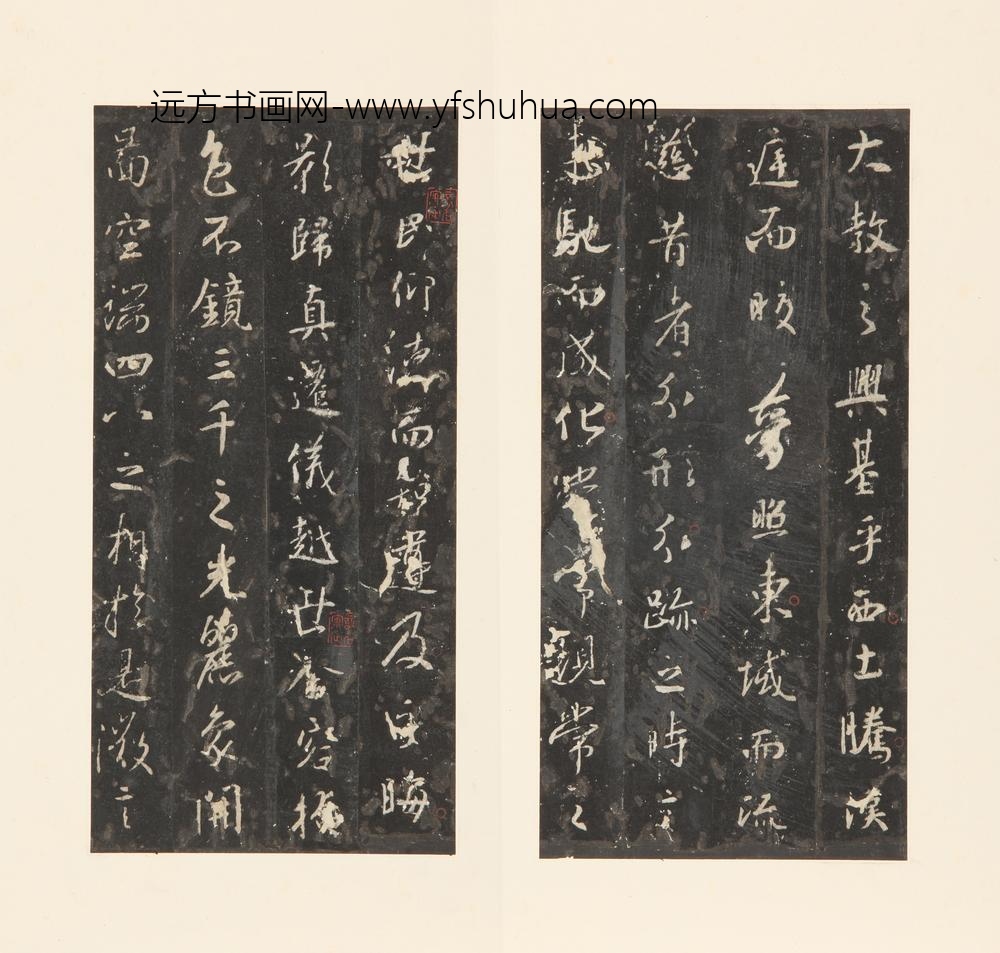 远方书画网-www.yfshuhua.com
大教之興基乎西土騰漢
庭而皎夢照東域而流
慈昔者分形分跡之時言
未馳而成化當常現常之
世民仰德而知遵及乎晦
影歸真遷儀越世金容掩
色不鏡三千之光麗象開
圖空端四八之相於是微言